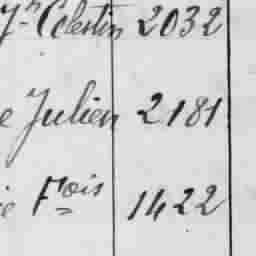 Jn Célestin 2032
e Julien 2181
ie Fois 1422